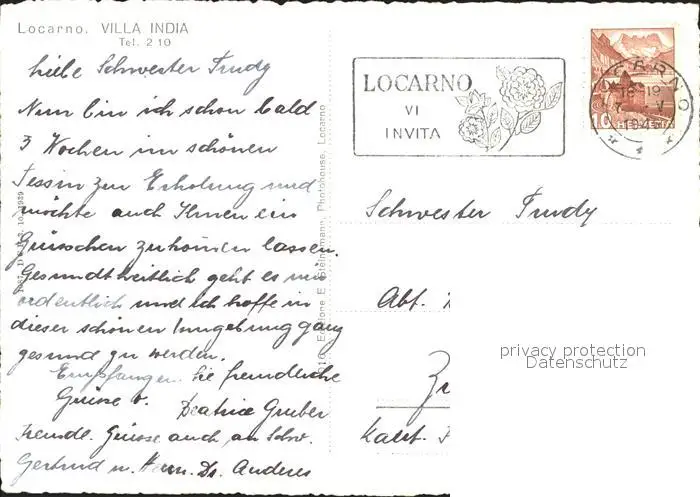 Locarno. VILLA INDIA
Tel. 2 10
Liebe Schwester Trudy
Nun bin ich schon bald
3 Wochen im schönen
Tessin zur Erholung und
möchte auch Ihnen ein
Grüsschen zukommen lassen.
Gesundtheitlich geht es mir
ordentlich und ich hoffe in
dieser schönen Umgebung ganz
gesund zu werden.
Empfangen Sie freundliche
Grüsse v. Beatrice Gruber
Freundl. Grüsse auch an Schw.
Gertrud u. Herrn Dr. Anderes
Edizione E. Steinemann, Photohouse, Locarno
LOCARNO
VI
INVITA
10
HELVETIA
Schwester Trudy
Abt.
Kant.
privacy protection
Datenschutz